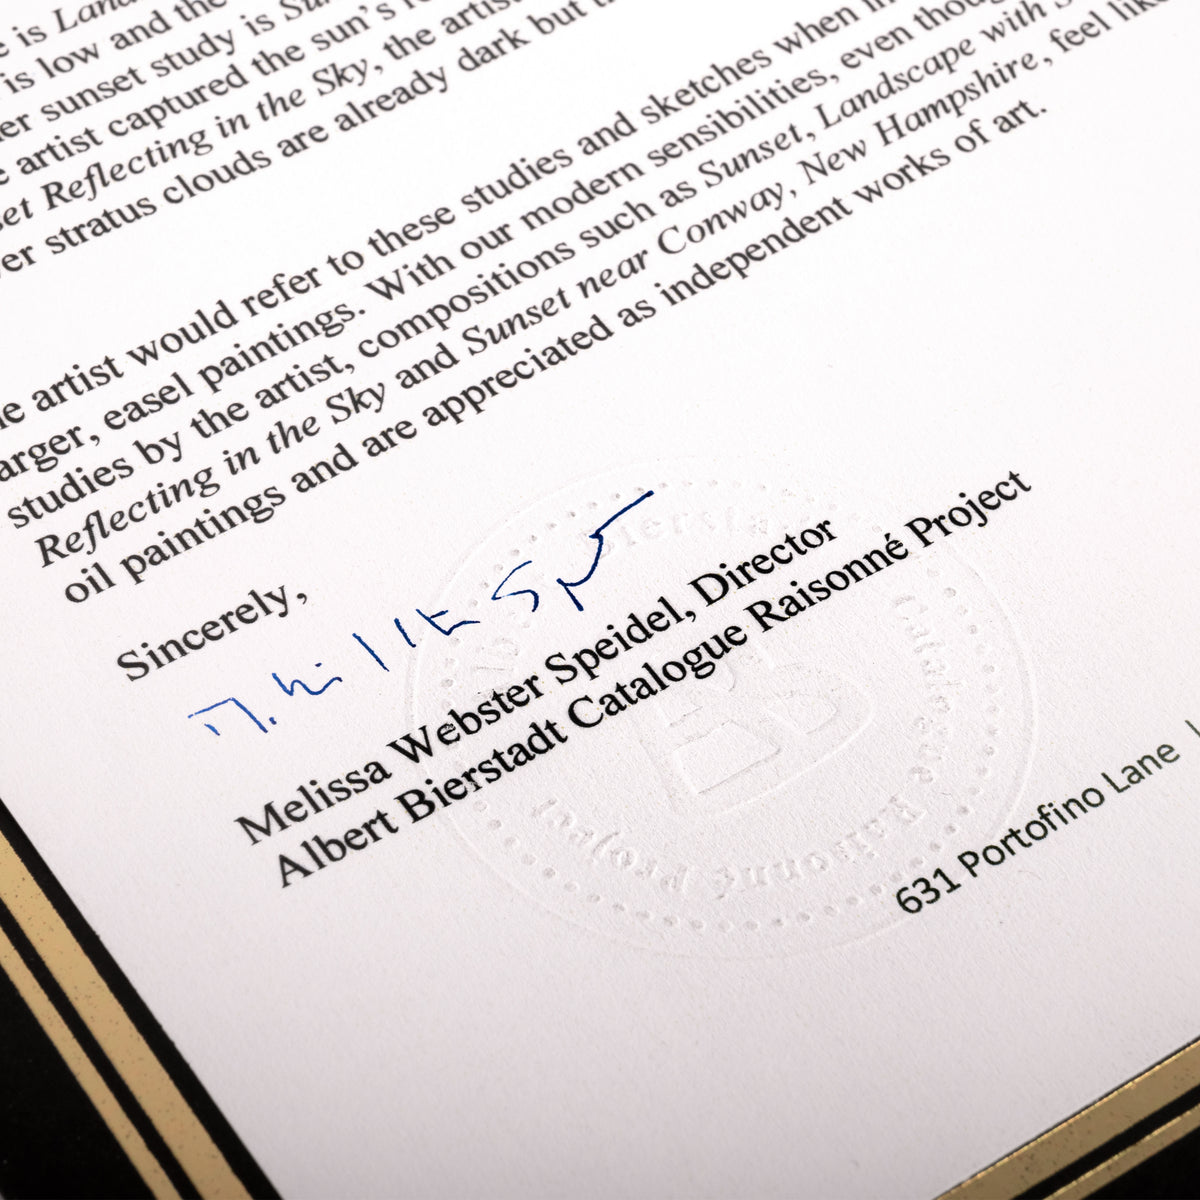 e is Land
is low and the
er sunset study is Su
e artist captured the sun's
et Reflecting in the Sky, the artis
er stratus clouds are already dark but t
he artist would refer to these studies and sketches when
arger, easel paintings. With our modern sensibilities, even thou
studies by the artist, compositions such as Sunset, Landscape with S
Reflecting in the Sky and Sunset near Conway, New Hampshire, feel lik
oil paintings and are appreciated as independent works of art.
Sincerely,
Melissa Webster Speidel, Director
Albert Bierstadt Catalogue Raisonné Project
Albert Bierstadt Catalogue Raisonné Project
631 Portofino Lane |